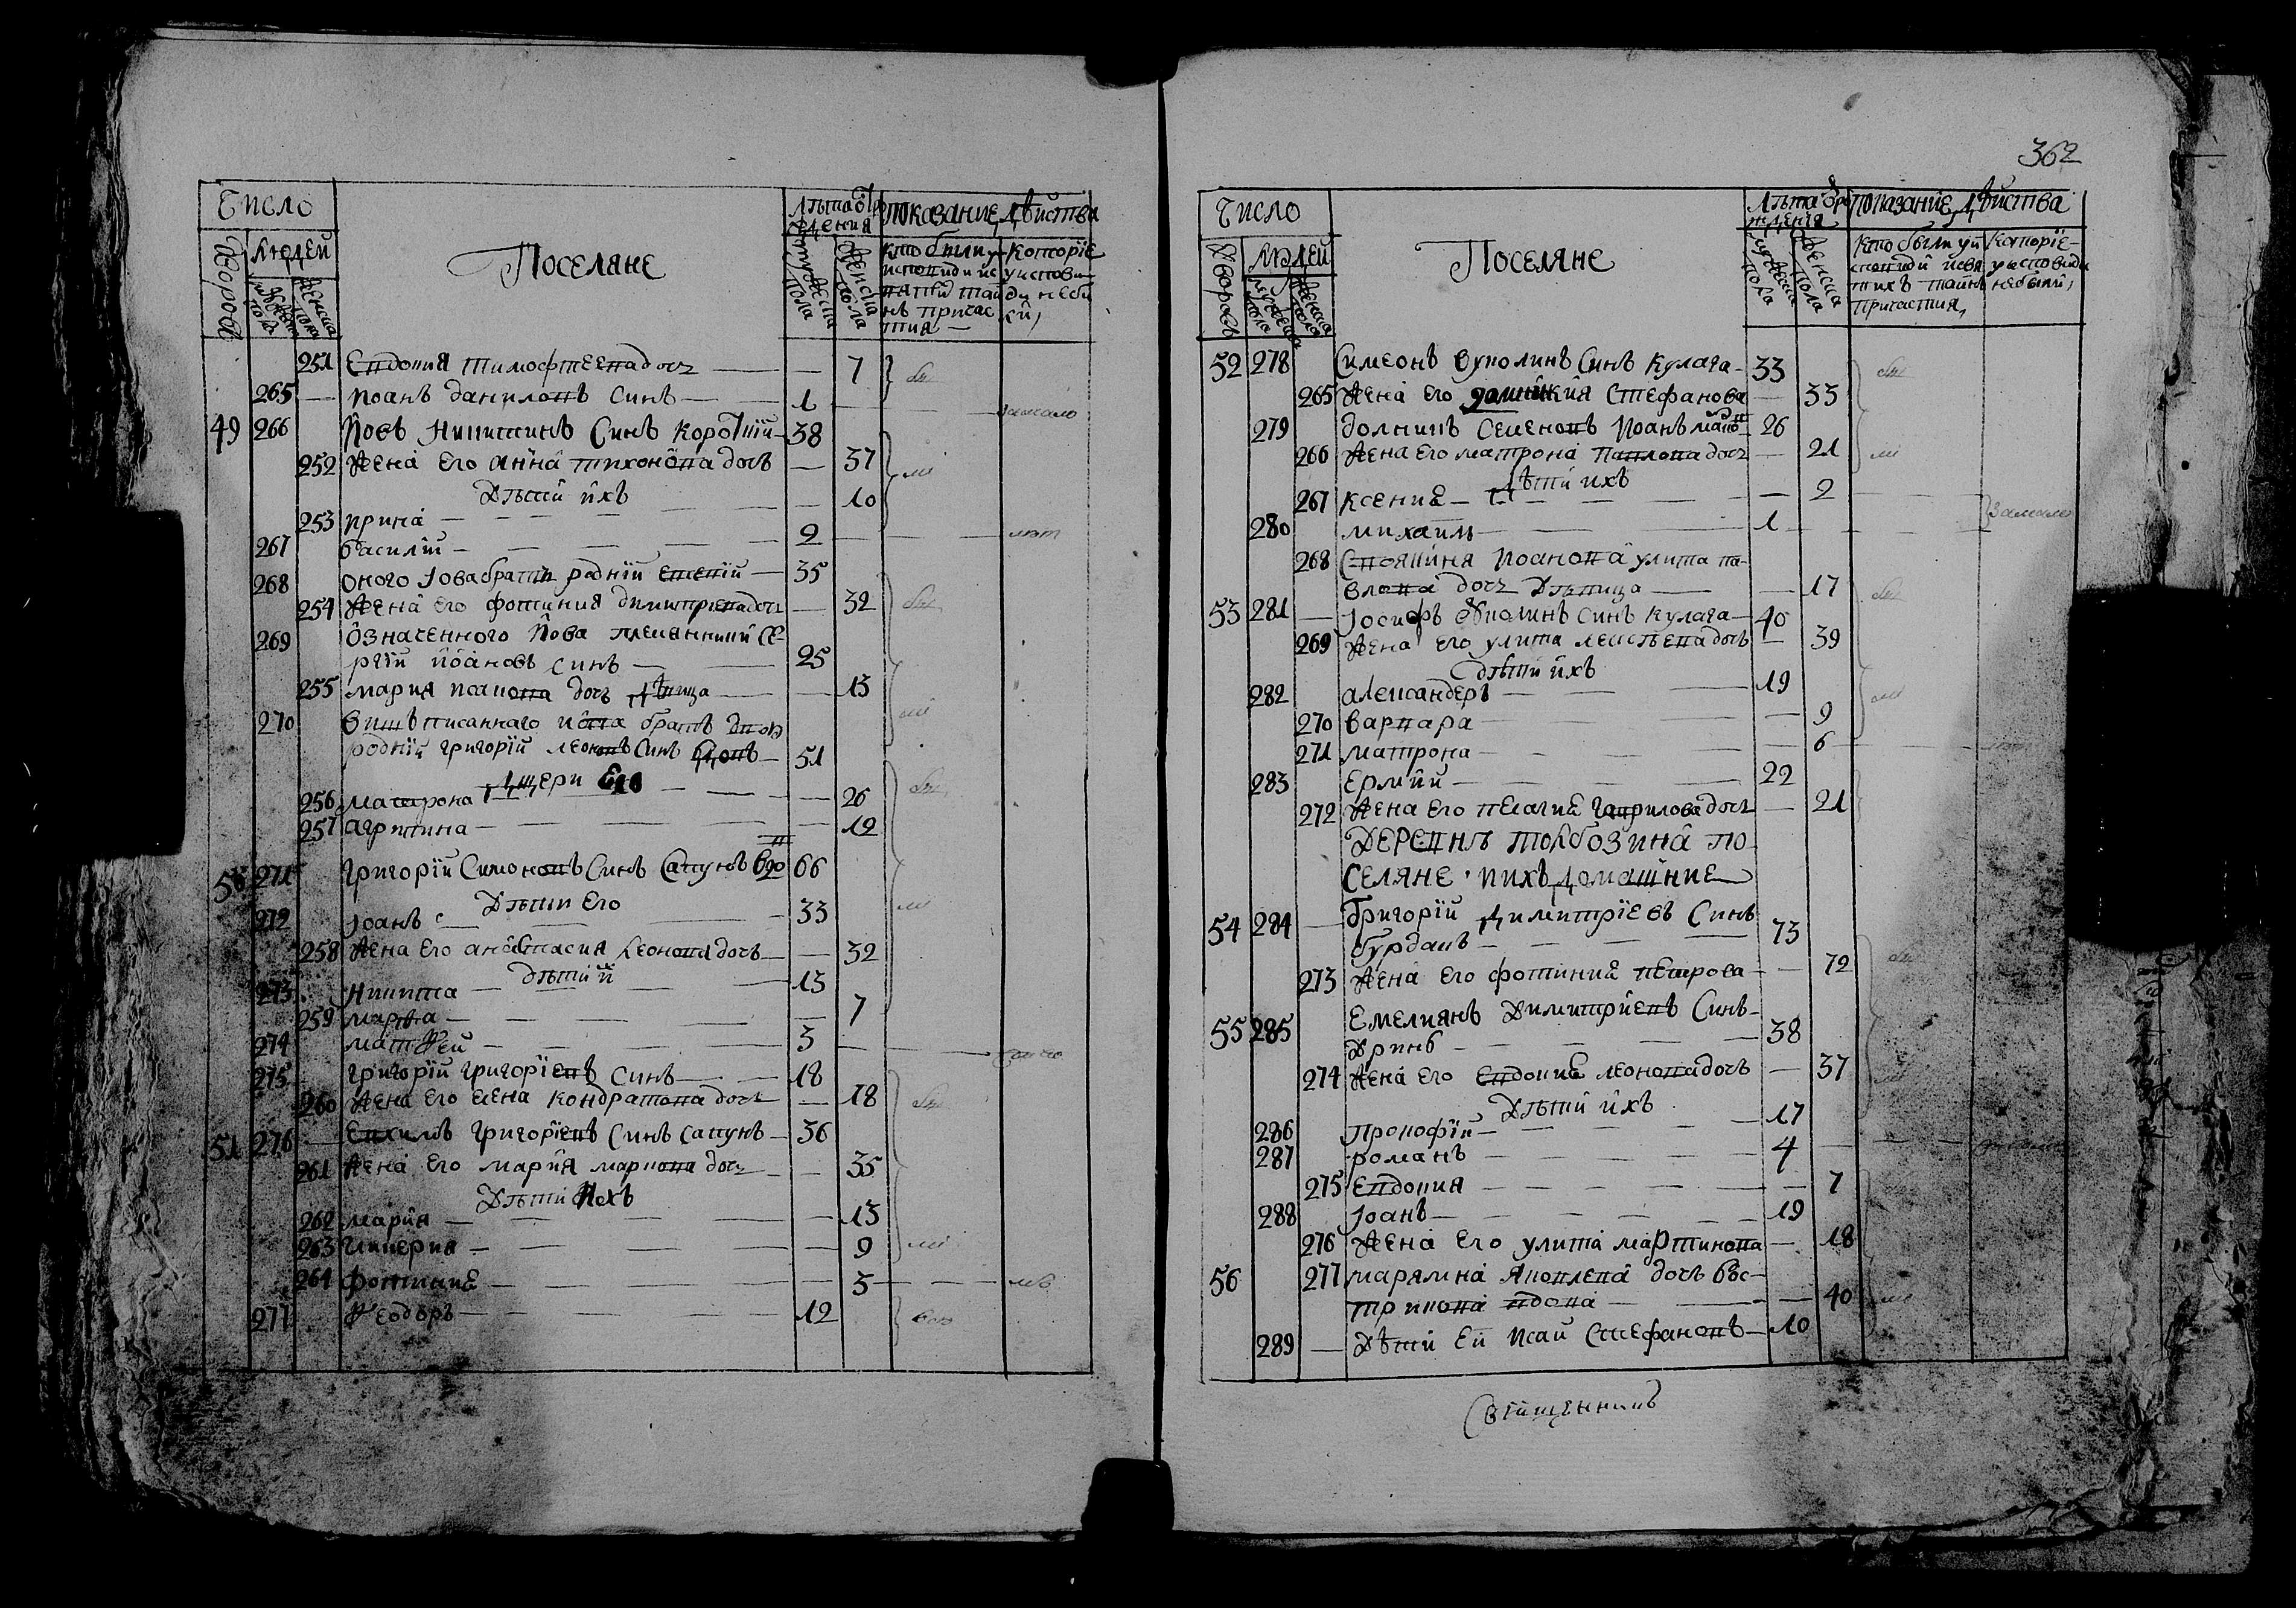 Число
Дворовъ
Людей
Мужеска пола
Женска пола
Поселяне
Лѣта от рождения
Мужеска пола
Женска пола
Показание дѣйства
кто были у исповиди и святих тайнъ причастия
Которїе у исповиди не були
251 Евдокия тимофтеева дочъ — — 7
265 — Иоанъ даниловъ синъ — 1
49 266 Иовъ Никитинъ Синъ Короткїй 38
252 Жена Его Анна тихонова дочъ — 37
Дѣти ихъ
253 Ирина — — 10
267 Василїй — 2
268 оного Иова братъ роднїй Евсевїй — 35
254 Жена Его фотиния димитриева дочъ — 32
269 Означенного Иова племянники Се
ргїй Иоановъ синъ — 25
255 мария иоанова дочъ дѣвица — 13
270 Вишъписаннаго Иова братъ двою
роднїй григорїй леоновъ Синъ вдовъ — 51
Дщери Его
256 матрона — — 26
257 агрипина — — 12
50 271 григорїй Симоновъ Синъ Сапунъ вдов 66
Дѣти Его
272 Иоанъ — 33
258 Жена Его анастасия леонова дочъ — 32
дѣтий
273 Никита — 13
259 марѳа — — 7
274 матѳей — 3
275 григорїй григорїевъ синъ — 18
260 Жена Его елена кондратова дочъ — 18
51 276 — Евхимъ григорїевъ Синъ сапунъ — 36
261 Жена Его мария маркова дочъ — 35
Дѣти Ихъ
262 мария — — 13
263 гликерия — — 9
264 фотиние — — 3
277 Ѳеодоръ — 12
362
Число
Дворовъ
Людей
Мужеска пола
Женска пола
Поселяне
Лѣта от рождения
Мужеска пола
Женска пола
показание дѣйства
Кто были у исповиди и святихъ тайнъ причастия
Которїе у исповиди не були
52 278 Симеонъ Вуколинъ Синъ Кулага — 33
265 Жена Его домникия Стефанова — 33
279 долникъ Семеновъ Иоанъ 26
266 Жена Его матрона Павлова дочъ — 21
дѣти ихъ
267 Ксение — — 2
280 михаилъ — 1
268 Своячиня Иоанова улита па-
влова дочъ Дѣвица — 17
53 281 — Иосифъ Вуколинъ синъ кулага — 40
269 Жена Его улита алексѣева дочъ — 39
дѣти ихъ
282 Александеръ — 19
270 варвара — — 9
271 матрона — — 6
283 Ермий — 22
272 Жена Его пелагие гаврилова дочъ — 21
Деревнѣ толбозина по
селяне и ихъ домашние
54 284 — Григорїй Димитрїевъ Синъ
бурдакъ — 73
273 Жена Его фотиния петрова — — 72
55 285 Емелиянъ Димитриевъ Синъ
73 Дринъ — 38
274 Жена Его Евдокие леонова дочъ — 37
Дѣти ихъ
286 Прокофїй — 17
287 романъ — 4
275 Евдокия — — 7
288 Иоанъ — 19
276 Жена Его улита мартинова — 18
56 277 марямна Яковлева дочъ
вдова — — 40
289 — Дѣти Ей Исай Стефановъ — 10
Священникъ